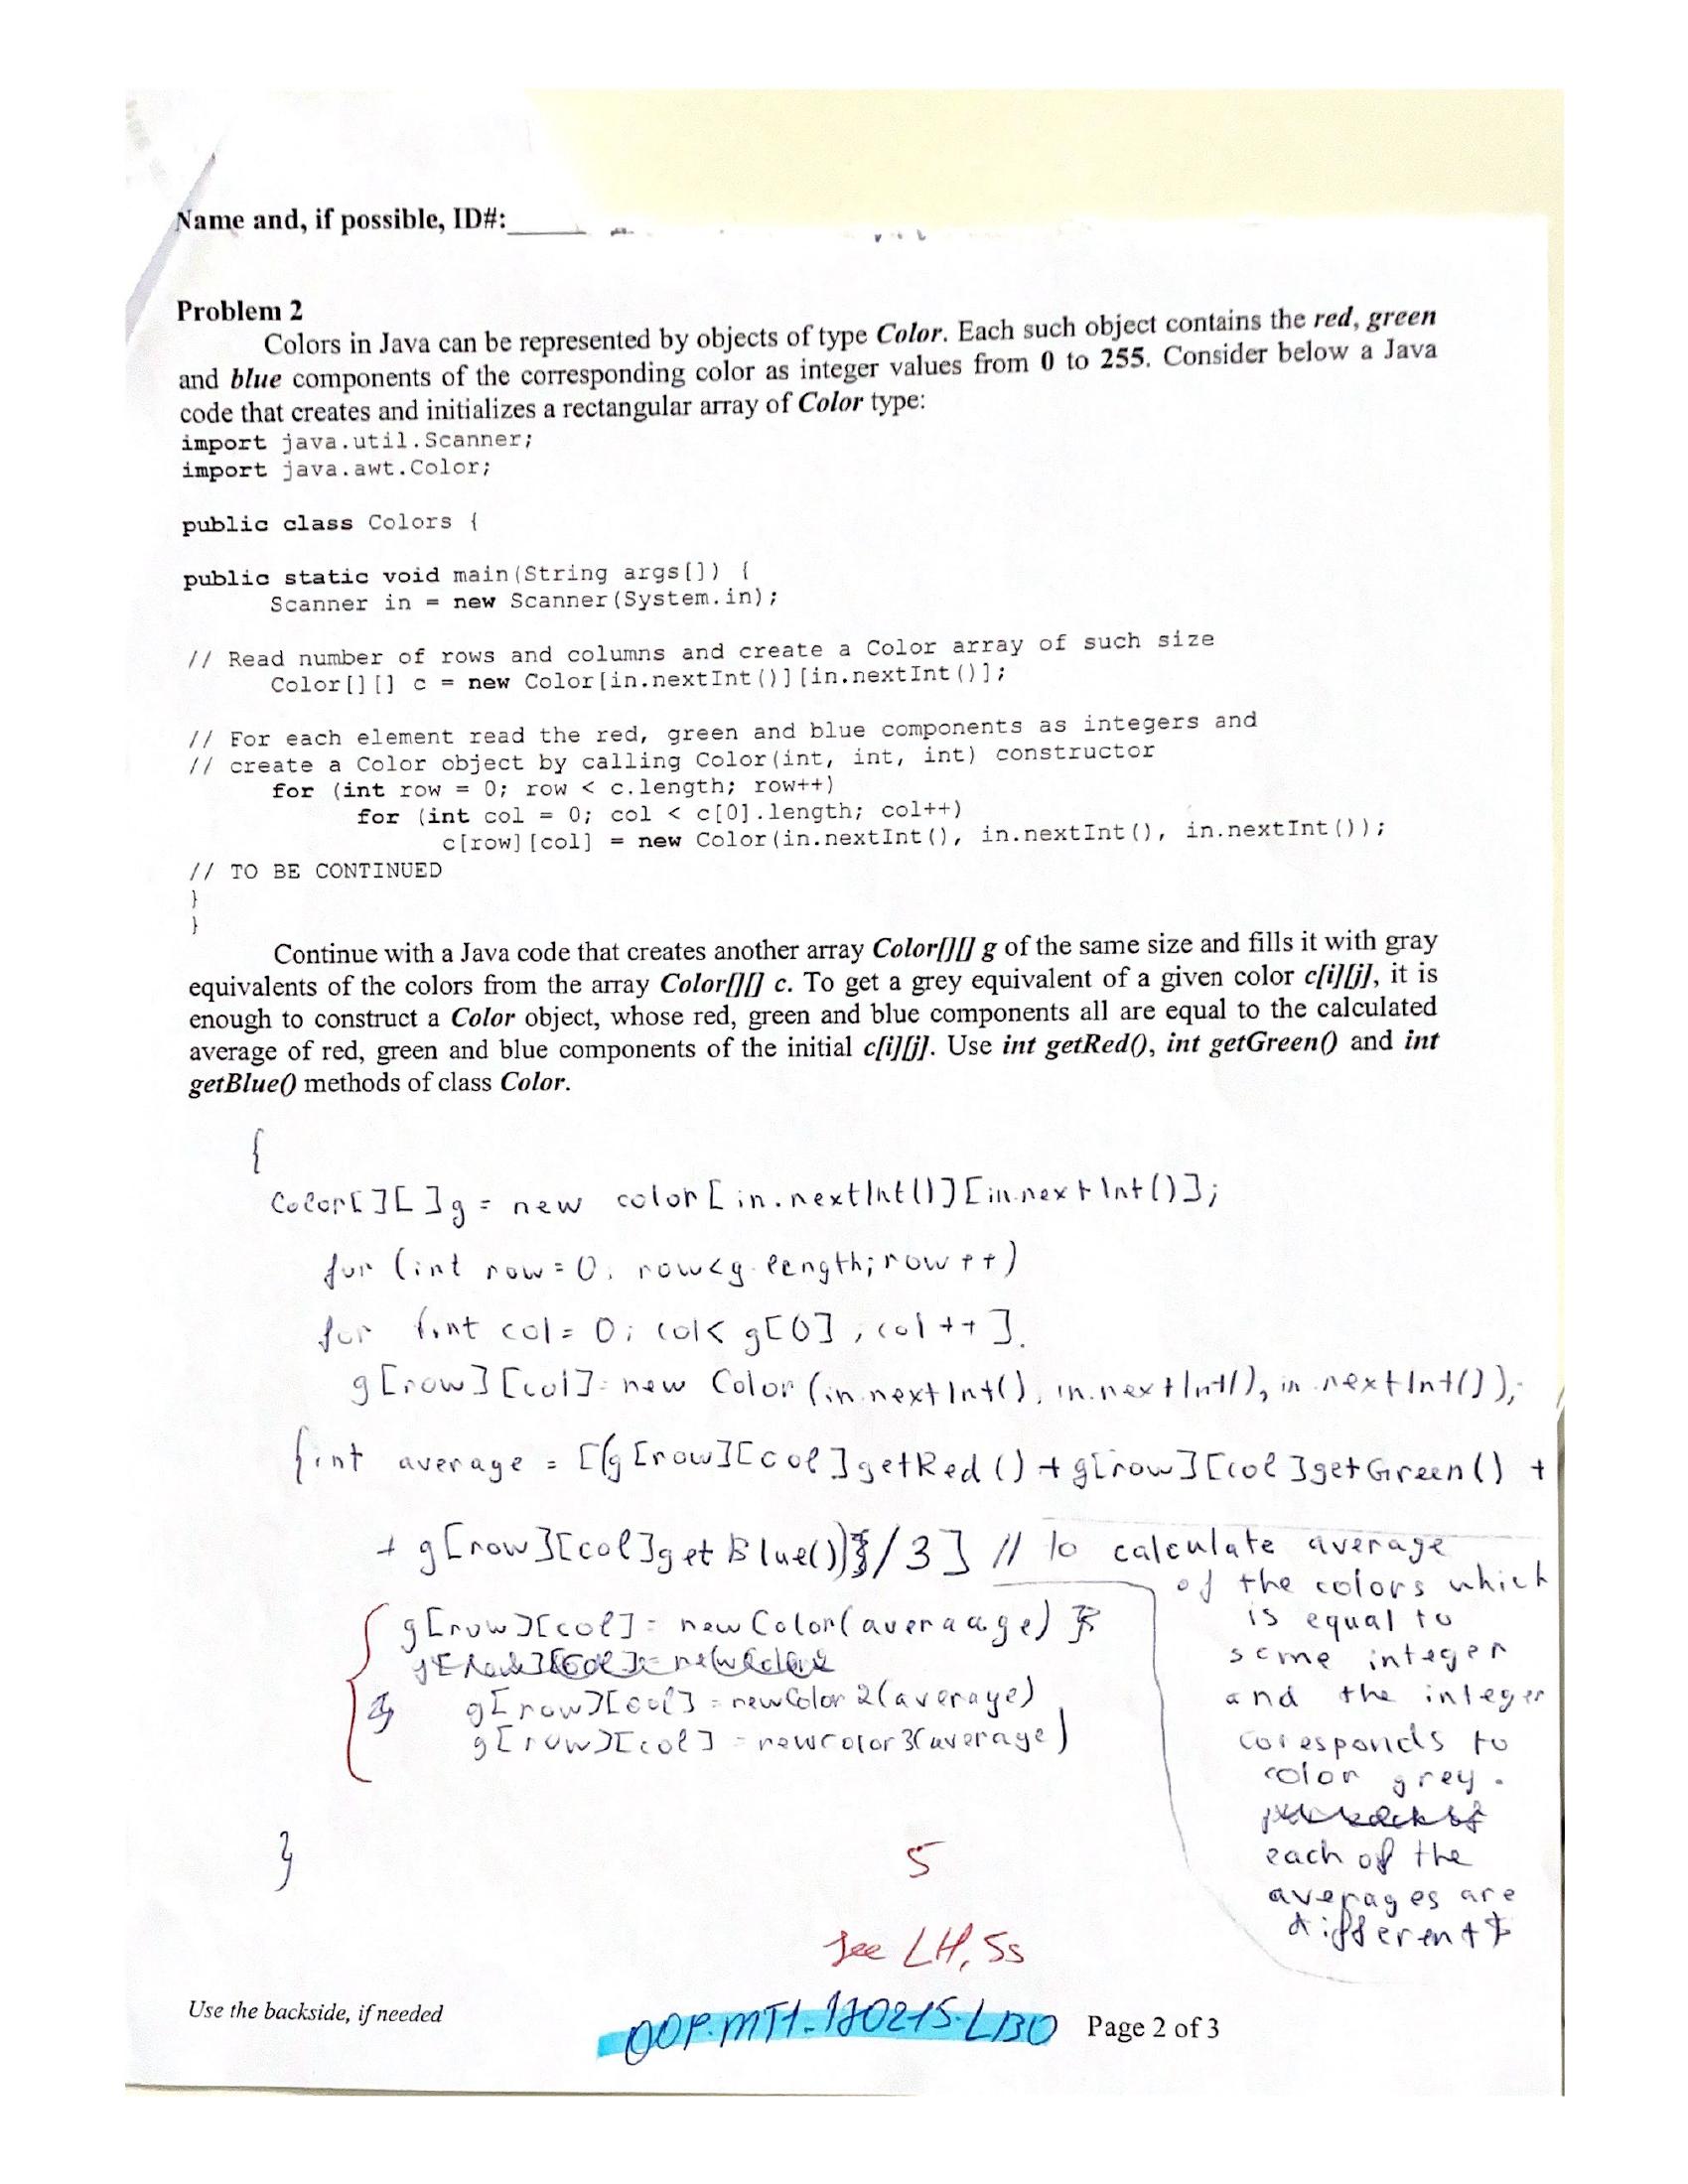 Name and, if possible, ID#:
Problem 2
Colors in Java can be represented by objects of type Color. Each such object contains the red, green
and blue components of the corresponding color as integer values from 0 to 255. Consider below a Java
code that creates and initializes a rectangular array of Color type:
import java.util.Scanner;
import java.awt.Color;
public class Colors {
public static void main(String args[]) {
Scanner in = new Scanner(System.in);
// Read number of rows and columns and create a Color array of such size
Color[][] c = new Color[in.nextInt()][in.nextInt()];
// For each element read the red, green and blue components as integers and
// create a Color object by calling Color(int, int, int) constructor
for (int row = 0; row < c.length; row++)
for (int col = 0; col < c[0].length; col++)
c[row][col] = new Color(in.nextInt(), in.nextInt(), in.nextInt());
// TO BE CONTINUED
}
}
Continue with a Java code that creates another array Color[][] g of the same size and fills it with gray
equivalents of the colors from the array Color[][] c. To get a grey equivalent of a given color c[i][j], it is
enough to construct a Color object, whose red, green and blue components all are equal to the calculated
average of red, green and blue components of the initial c[i][j]. Use int getRed(), int getGreen() and int
getBlue() methods of class Color.
{
Color[][]g = new color[in.nextInt()][in.nextInt()];
for (int row=0; row<g.length; row++)
for int col=0; col< g[0], col++].
g[row][col]=new Color(in.nextInt(), in.nextInt(), in.nextInt());
{int average = [(g[row][col]getRed()+g[row][col]getGreen() +
+ g[row][col]getBlue())/3] // to calculate average
of the colors which
is equal to
some integer
and the integer
coresponds to
color grey.
each of the
averages are
different
g[row][col]=newColor(averaage)
g[row][col]=newColor2(average)
g[row][col]=newcolor3(average)
}
5
See LH, Ss
Use the backside, if needed
OOP.MT1.170215.LBO
Page 2 of 3